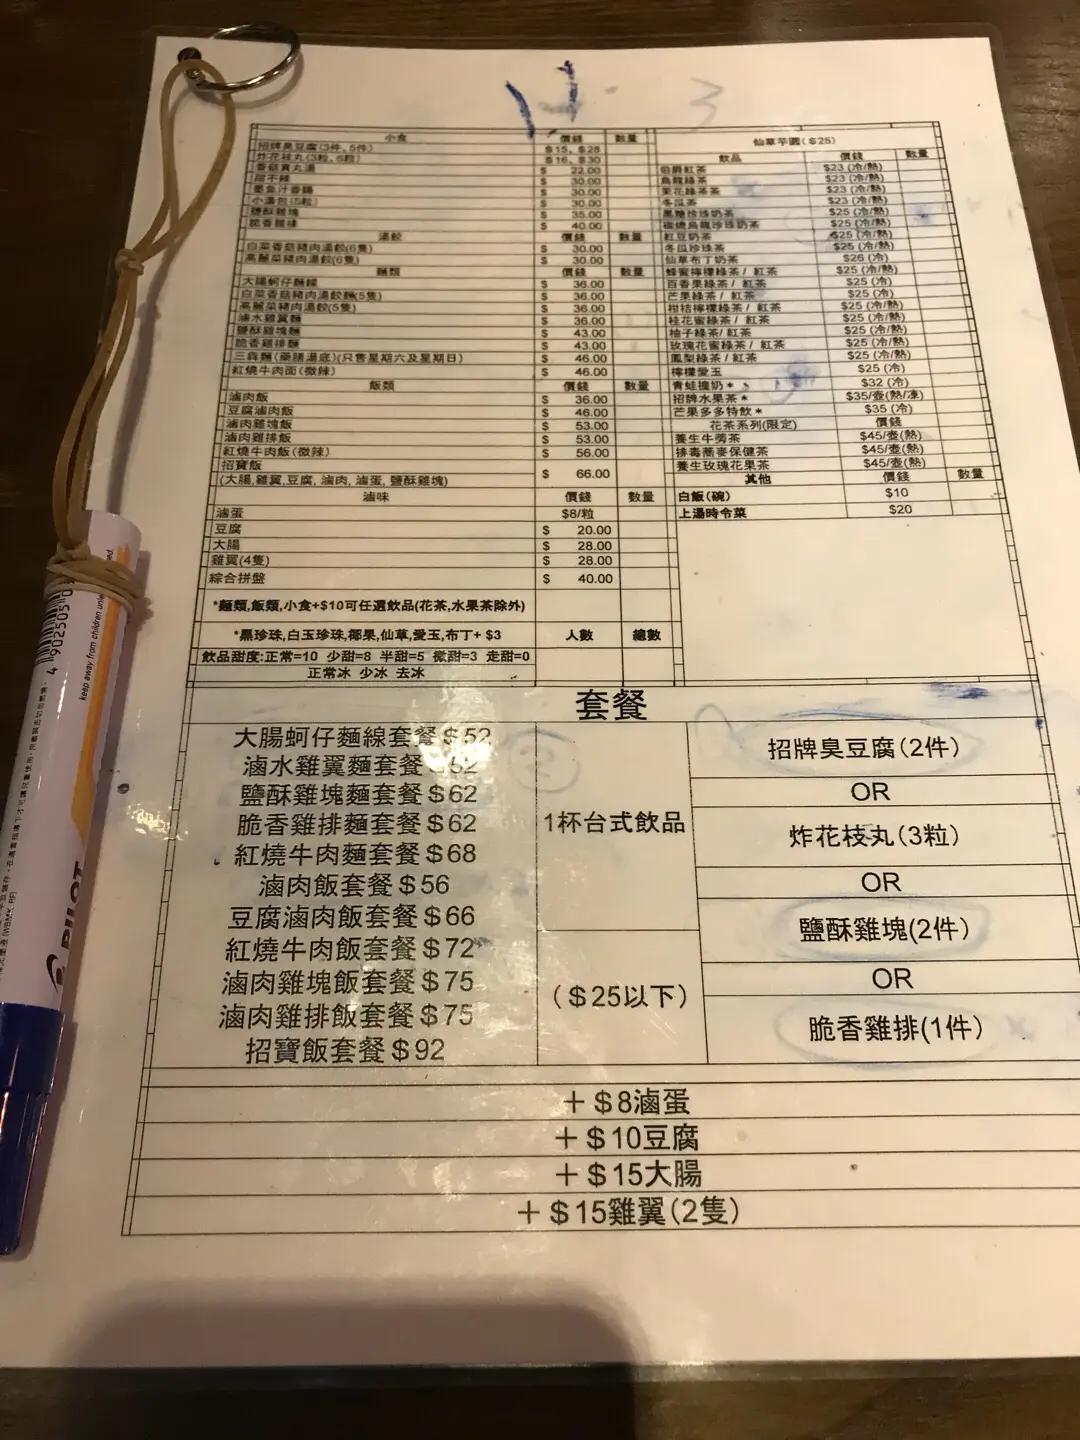 3
小食 價錢 數量
招牌臭豆腐(3件, 5件) $15, $28
炸花枝丸(3粒, 6粒) $16, $30
香菇貢丸湯 $ 22.00
甜不辣 $ 30.00
墨魚汁香腸 $ 30.00
小湯包(5粒) $ 30.00
鹽酥雞塊 $ 35.00
脆香雞排 $ 40.00
湯餃 價錢 數量
白菜香菇豬肉湯餃(6隻) $ 30.00
高麗菜豬肉湯餃(6隻) $ 30.00
麵類 價錢 數量
大腸蚵仔麵線 $ 36.00
白菜香菇豬肉湯餃麵(5隻) $ 36.00
高麗菜豬肉湯餃(5隻) $ 36.00
滷水雞翼麵 $ 36.00
鹽酥雞塊麵 $ 43.00
脆香雞排麵 $ 43.00
三寶麵(藥膳湯底)(只售星期六及星期日) $ 46.00
紅燒牛肉面(微辣) $ 46.00
飯類 價錢 數量
滷肉飯 $ 36.00
豆腐滷肉飯 $ 46.00
滷肉雞塊飯 $ 53.00
滷肉雞排飯 $ 53.00
紅燒牛肉飯(微辣) $ 56.00
招寶飯
(大腸,雞翼,豆腐, 滷肉, 滷蛋, 鹽酥雞塊) $ 66.00
滷味 價錢 數量
滷蛋 $8/粒
豆腐 $ 20.00
大腸 $ 28.00
雞翼(4隻) $ 28.00
綜合拼盤 $ 40.00
*麵類,飯類,小食+$10可任選飲品(花茶,水果茶除外)
*黑珍珠,白玉珍珠,椰果,仙草,愛玉,布丁+ $3 人數 總數
飲品甜度:正常=10 少甜=8 半甜=5 微甜=3 走甜=0
正常冰 少冰 去冰
仙草芋圓($25)
飲品 價錢 數量
伯爵紅茶 $23 (冷/熱)
烏龍綠茶 $23 (冷/熱)
茉花綠茶茶 $23 (冷/熱)
冬瓜茶 $23 (冷/熱)
黑糖珍珠奶茶 $25 (冷/熱)
烏龍珍珠奶茶 $25 (冷/熱)
紅豆奶茶 $25 (冷/熱)
冬瓜珍珠茶 $25 (冷/熱)
仙草布丁奶茶 $26 (冷)
蜂蜜檸檬綠茶 / 紅茶 $25 (冷/熱)
百香果綠茶 / 紅茶 $25 (冷)
芒果綠茶 / 紅茶 $25 (冷)
柑桔檸檬綠茶 / 紅茶 $25 (冷/熱)
桂花蜜綠茶 / 紅茶 $25 (冷/熱)
柚子綠茶/ 紅茶 $25 (冷/熱)
玫瑰花蜜綠茶 / 紅茶 $25 (冷/熱)
鳳梨綠茶 / 紅茶 $25 (冷/熱)
檸檬愛玉 $25 (冷)
青蛙撞奶* $32 (冷)
招牌水果茶* $35/壺(熱/凍)
芒果多多特飲* $35 (冷)
花茶系列(限定) 價錢
養生牛蒡茶 $45/壺(熱)
排毒蕎麥保健茶 $45/壺(熱)
養生玫瑰花果茶 $45/壺(熱)
其他 價錢 數量
白飯(碗) $10
上湯時令菜 $20
套餐
大腸蚵仔麵線套餐$52
滷水雞翼麵套餐$52
鹽酥雞塊麵套餐$62
脆香雞排麵套餐$62
紅燒牛肉麵套餐$68
滷肉飯套餐$56
豆腐滷肉飯套餐$66
紅燒牛肉飯套餐$72
滷肉雞塊飯套餐$75
滷肉雞排飯套餐$75
招寶飯套餐$92
1杯台式飲品
($25以下)
招牌臭豆腐(2件)
OR
炸花枝丸(3粒)
OR
鹽酥雞塊(2件)
OR
脆香雞排(1件)
+$8滷蛋
+$10豆腐
+$15大腸
+$15雞翼(2隻)
keep away from children
PILOT
4 902505 0